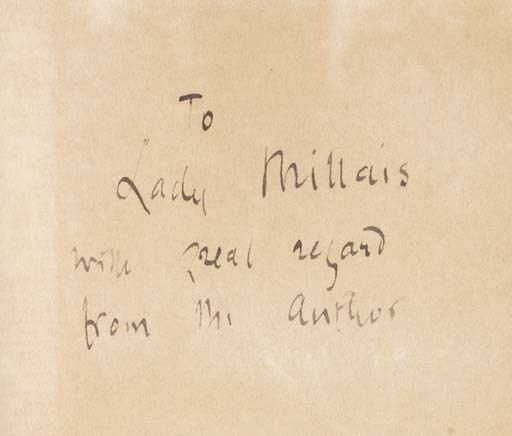 To
Lady Millais
with great regard
from the author